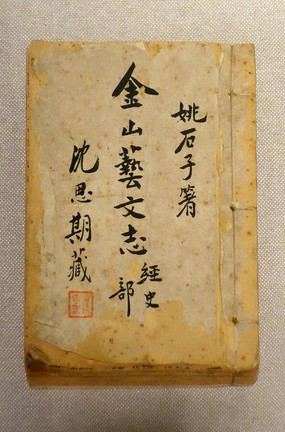 姚石子著
金山藝文志經史部
沈思期藏